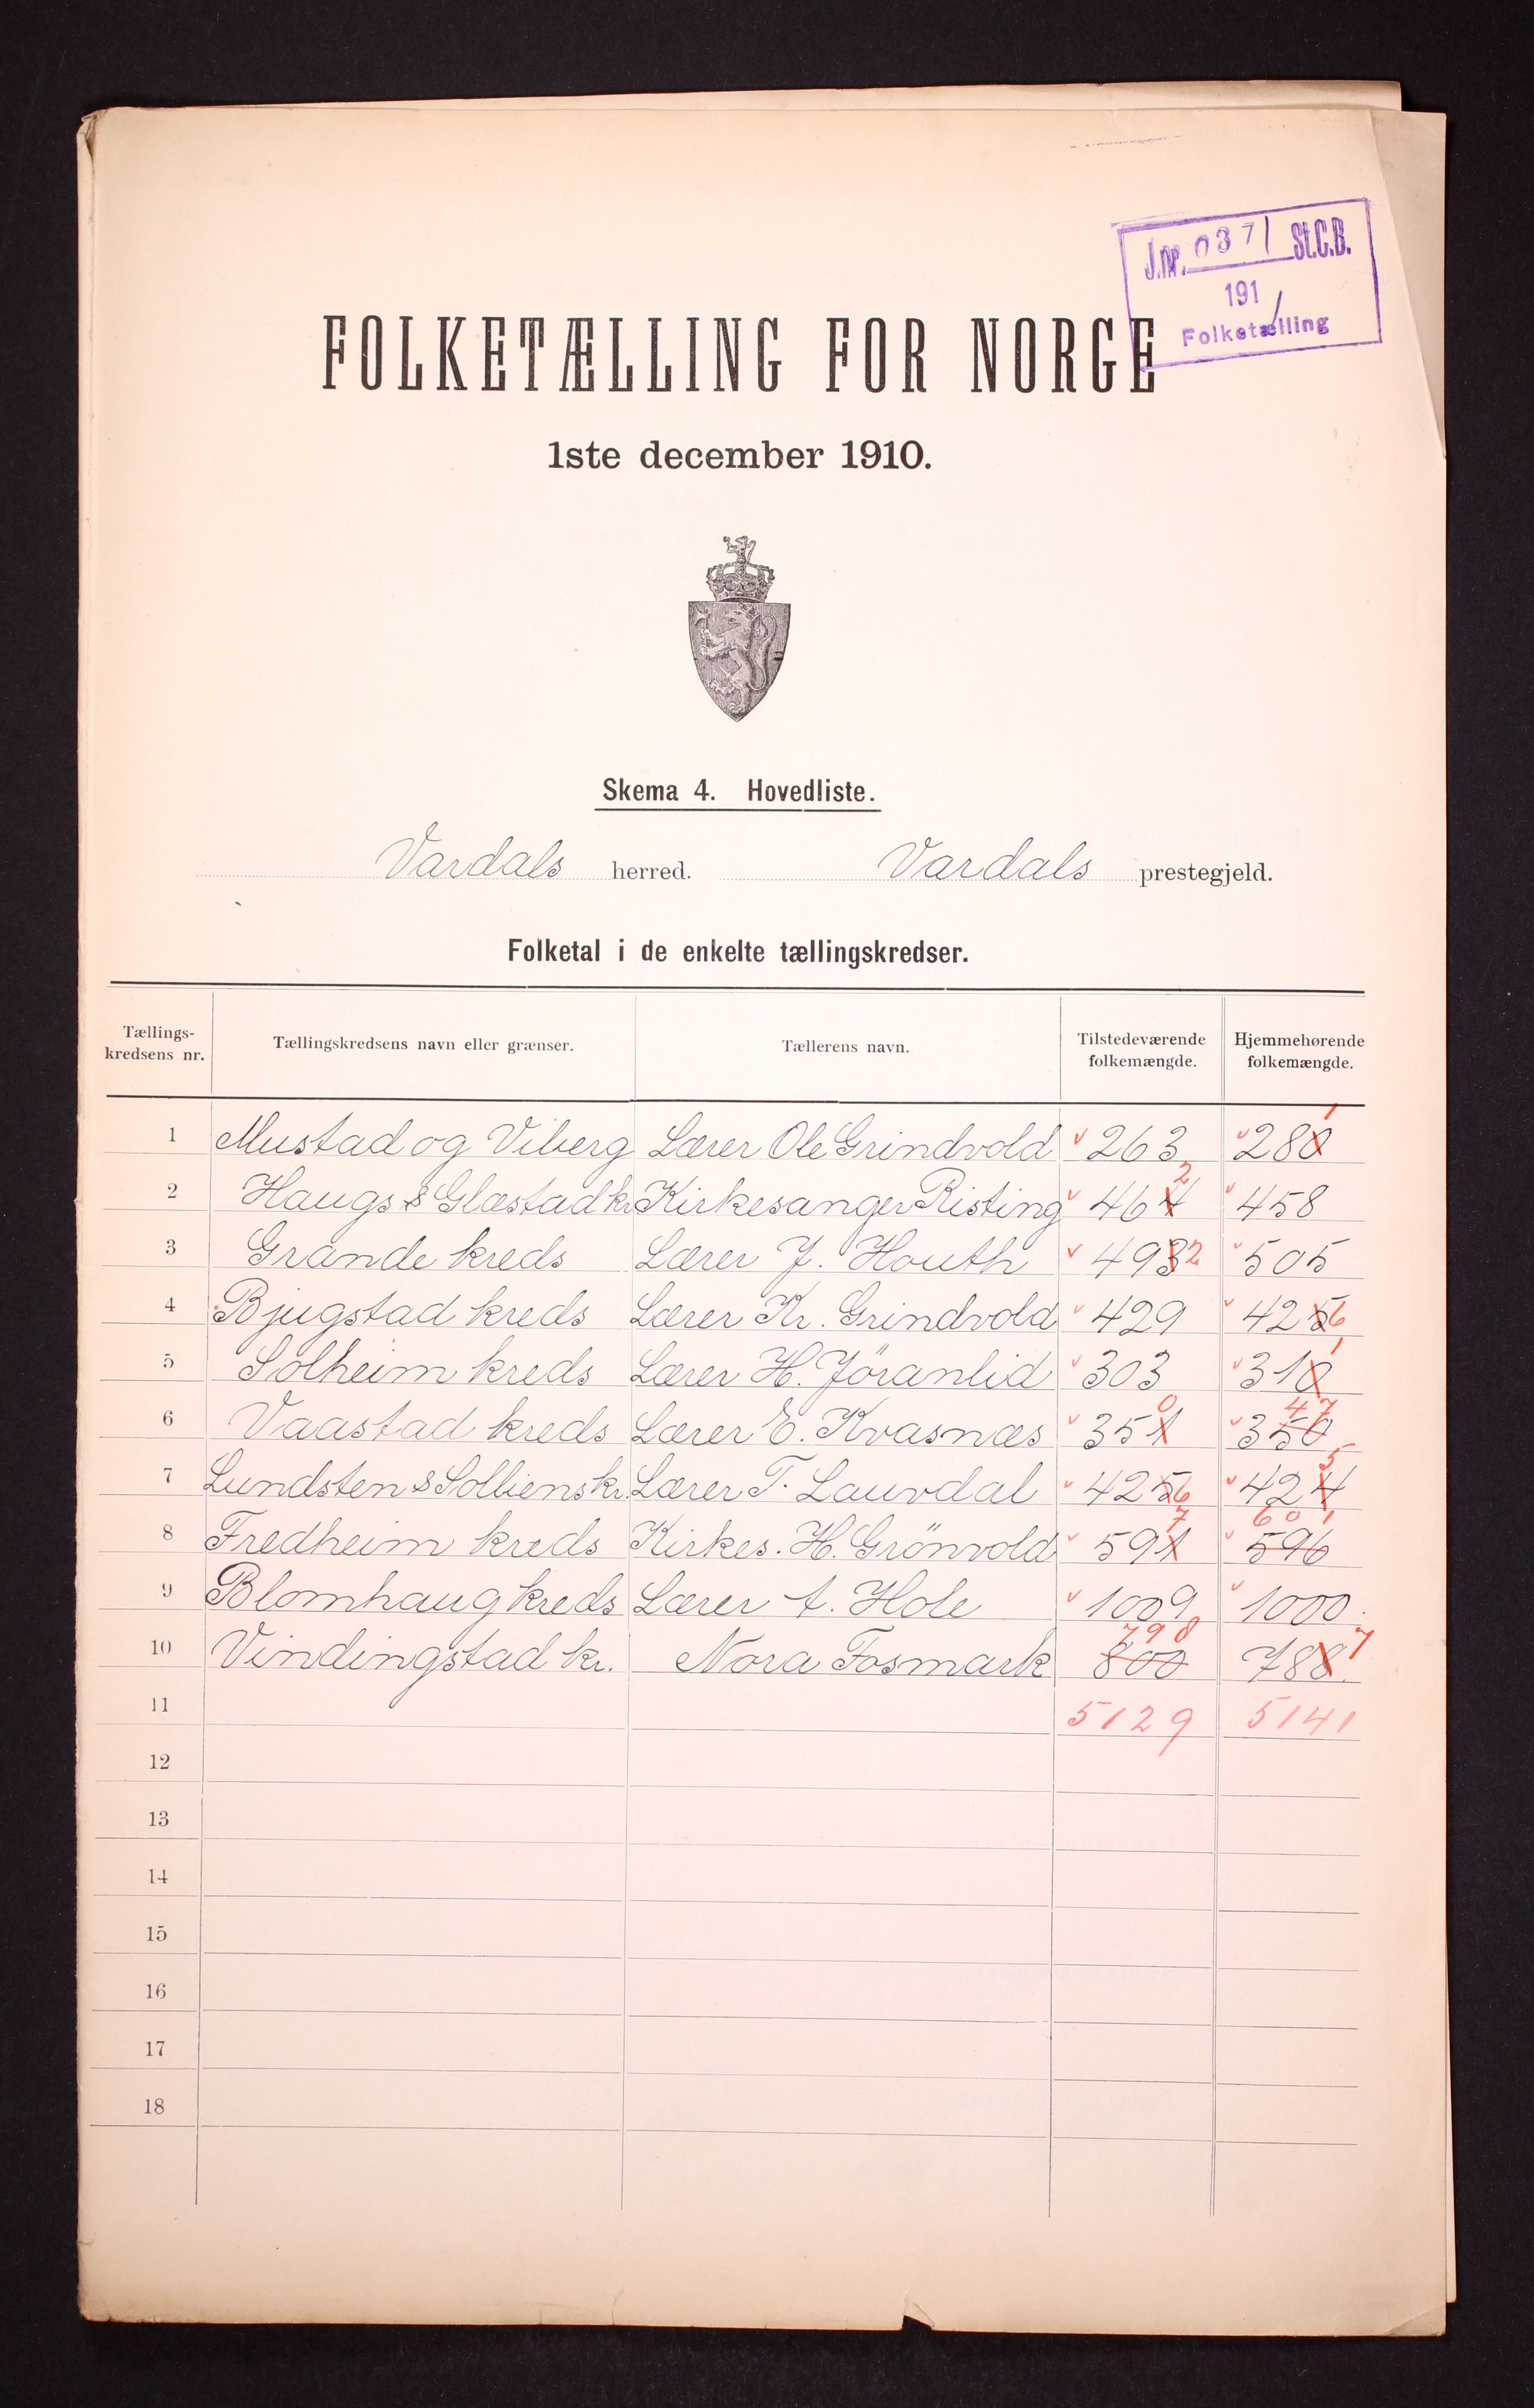 J.nr. 0371 St.C.B.
191/
Folketælling
FOLKETÆLLING FOR NORGE
1ste december 1910.
Skema 4. Hovedliste.
Vardals herred. Vardals prestegjeld.
Folketal i de enkelte tællingskredser.
Tællings-kredsens nr. Tællingskredsens navn eller grænser. Tællerens navn. Tilstedeværende folkemængde. Hjemmehørende folkemængde.
1 Mustad og Viberg Lærer Ole Grindvold 263 280 1
2 Haugs & Glæstad kr. Kirkesanger Risting 464 2 458
3 Grande kreds Lærer J. Houth 493 2 505
4 Bjugstad kreds Lærer Kr. Grindvold 429 425 6
5 Solheim kreds Lærer H. Jöranlid 303 310 1
6 Vaastad kreds Lærer E. Kvasnæs 351 0 350 47
7 Lundsten & Solliens kr. Lærer T. Lauvdal 425 6 424 5
8 Fredheim kreds Kirkes. H. Grönvold 591 7 596 601
9 Blomhaug kreds Lærer A. Hole 1009 1000
10 Vindingstad kr. Nora Fosmark 800 798 788 7
11 5129 5141
12
13
14
15
16
17
18